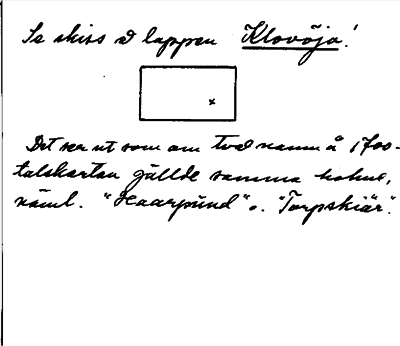 Se skiss å lappen Klovöja!
x
Det ser ut som om två namn å 1700-
talskartan gällde samma holme,
näml. "Haarpünd" o. "Torpskiär".